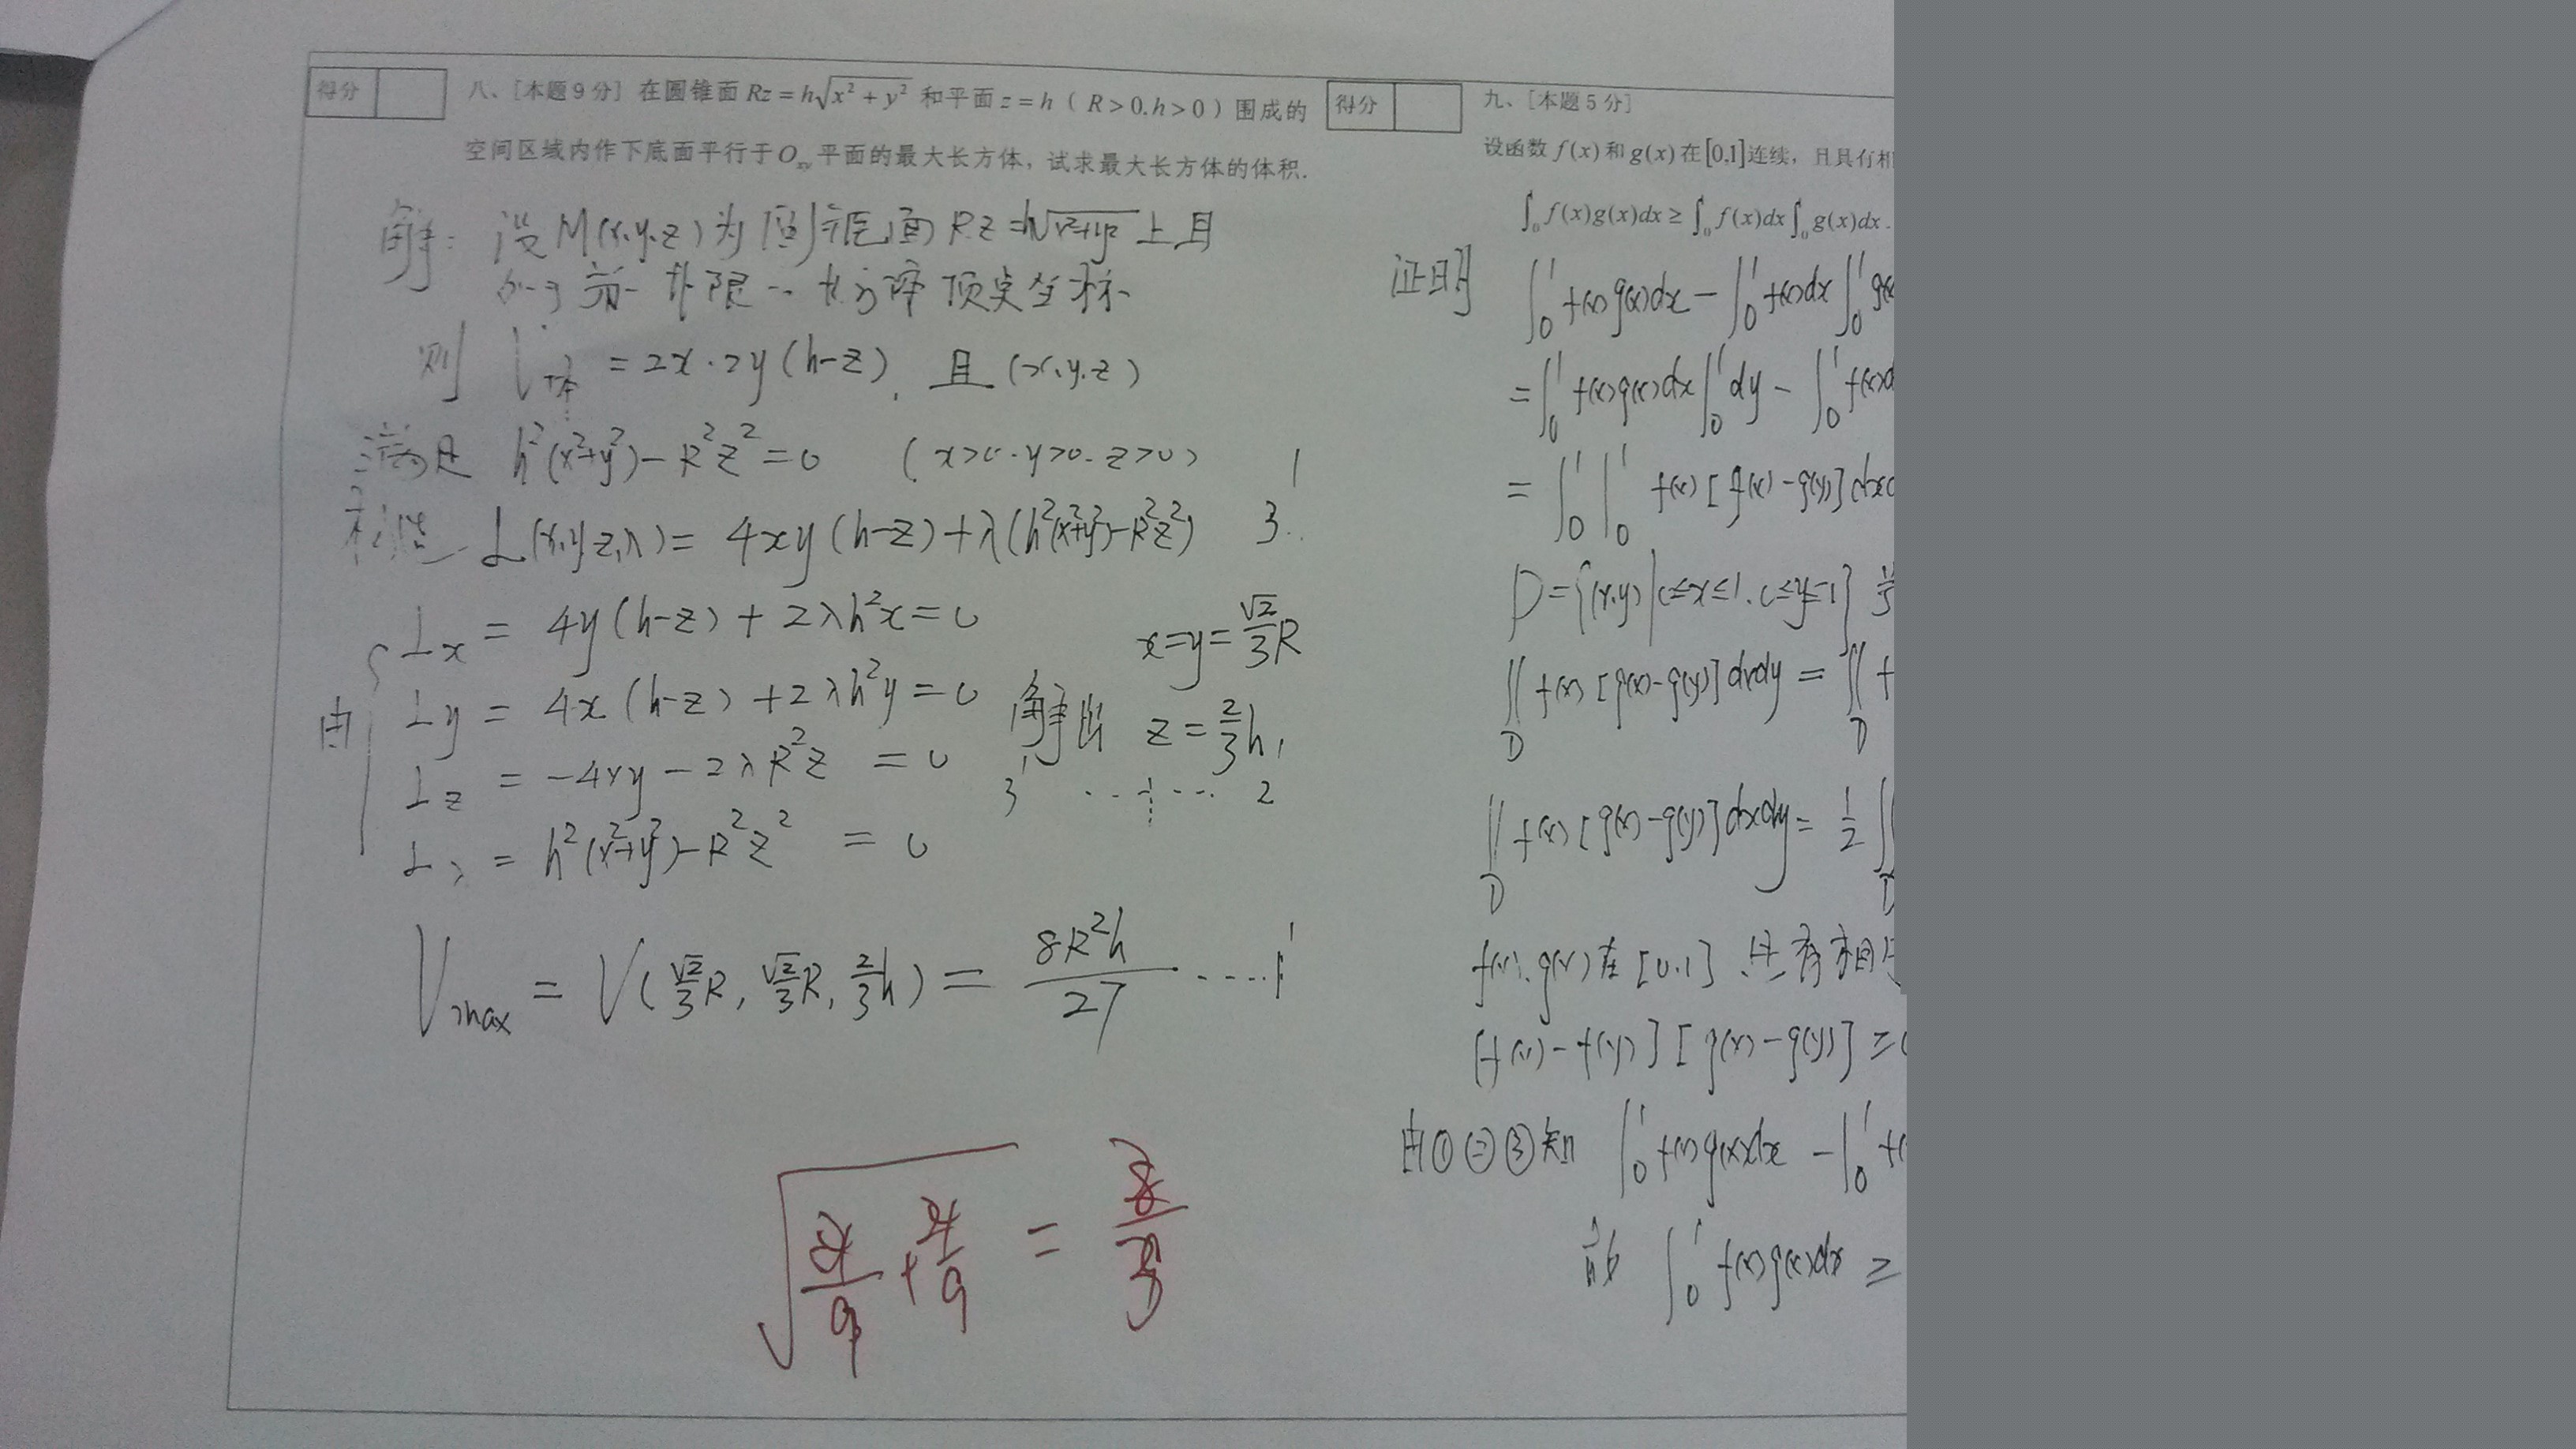 得分
八、[本题9分] 在圆锥面 Rz = h√(x² + y²) 和平面 z = h ( R > 0. h > 0 ) 围成的
空间区域内作下底面平行于 Oxy 平面的最大长方体，试求最大长方体的体积.
解: 设 M(x,y,z) 为圆锥面 Rz = h√(x²+y²) 上且
卦限 长方体 顶点坐标
则 V = 2x·2y(h-z), 且 (x,y,z)
满足 h²(x²+y²) - R²z² = 0 (x>0. y>0. z>0) 1
构造 L(x,y,z,λ) = 4xy(h-z) + λ(h²(x²+y²) - R²z²) 3
由
Lx = 4y(h-z) + 2λh²x = 0
Ly = 4x(h-z) + 2λh²y = 0
Lz = -4xy - 2λR²z = 0
Lλ = h²(x²+y²) - R²z² = 0
3
解出
x = y = √2/3 R
z = 2/3 h,
2
Vmax = V(√2/3 R, √2/3 R, 2/3 h) = 8R²h/27 ····1
得分
九、[本题5分]
设函数 f(x) 和 g(x) 在 [0,1] 连续，且具有相
∫₀¹ f(x)g(x)dx ≥ ∫₀¹ f(x)dx ∫₀¹ g(x)dx .
证明 ∫₀¹ f(x)g(x)dx - ∫₀¹ f(x)dx ∫₀¹
= ∫₀¹ f(x)g(x)dx ∫₀¹ dy - ∫₀¹
= ∫₀¹ ∫₀¹ f(x)[g(x)-g(y)]dx
D = {(x,y) | 0≤x≤1, 0≤y≤1}
∬D f(x)[g(x)-g(y)]dxdy = ∬D
∬D f(x)[g(x)-g(y)]dxdy = 1/2 ∬D
f(x), g(x) 在 [0,1] 具有相
[f(x)-f(y)][g(x)-g(y)] ≥
由①②③知 ∫₀¹ f(x)g(x)dx - ∫₀¹
故 ∫₀¹ f(x)g(x)dx ≥